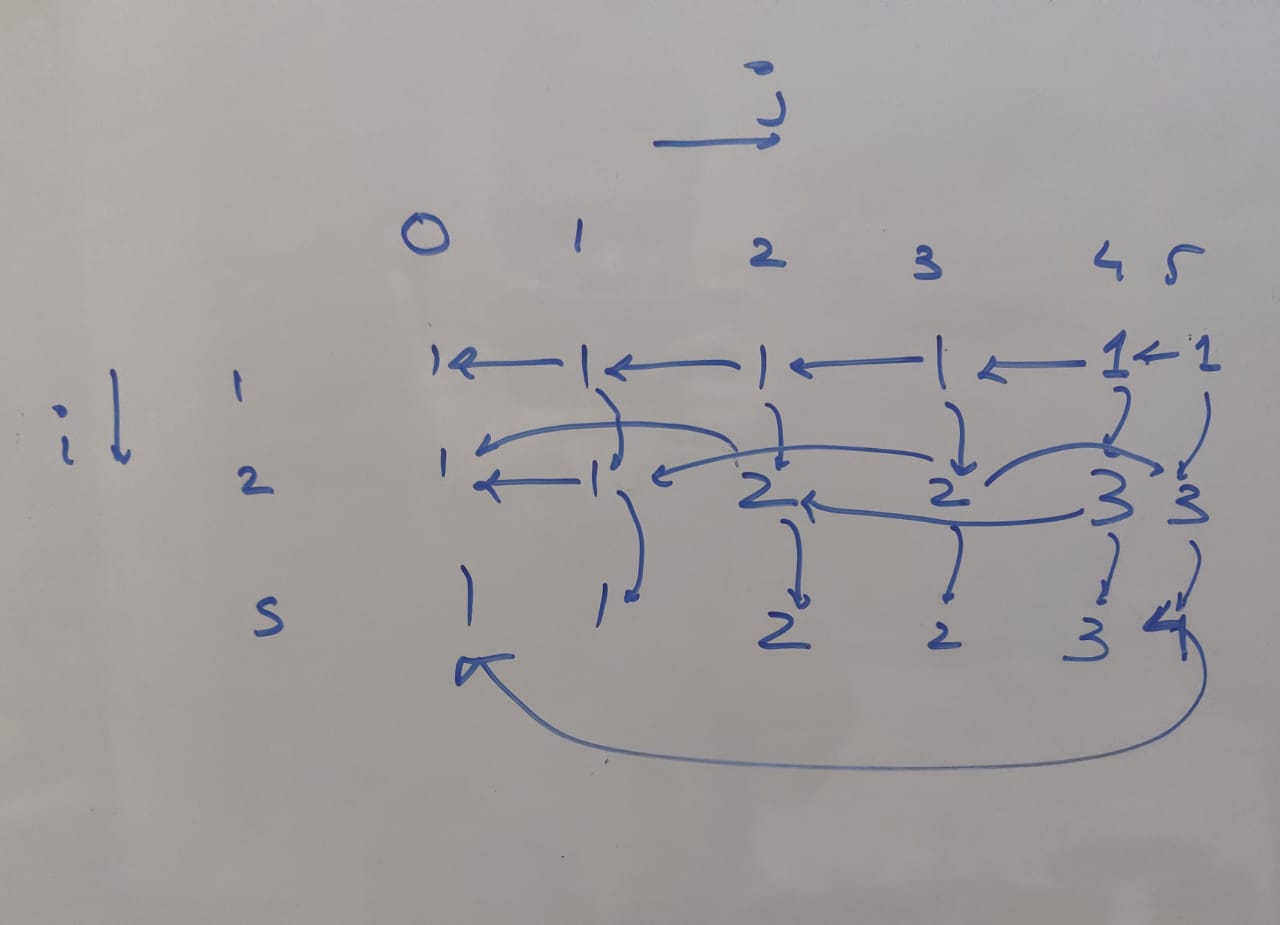 j
0 1 2 3 4 5
1 1 1 1 1 1 1
i 2 1 1 2 2 3 3
5 1 1 2 2 3 4